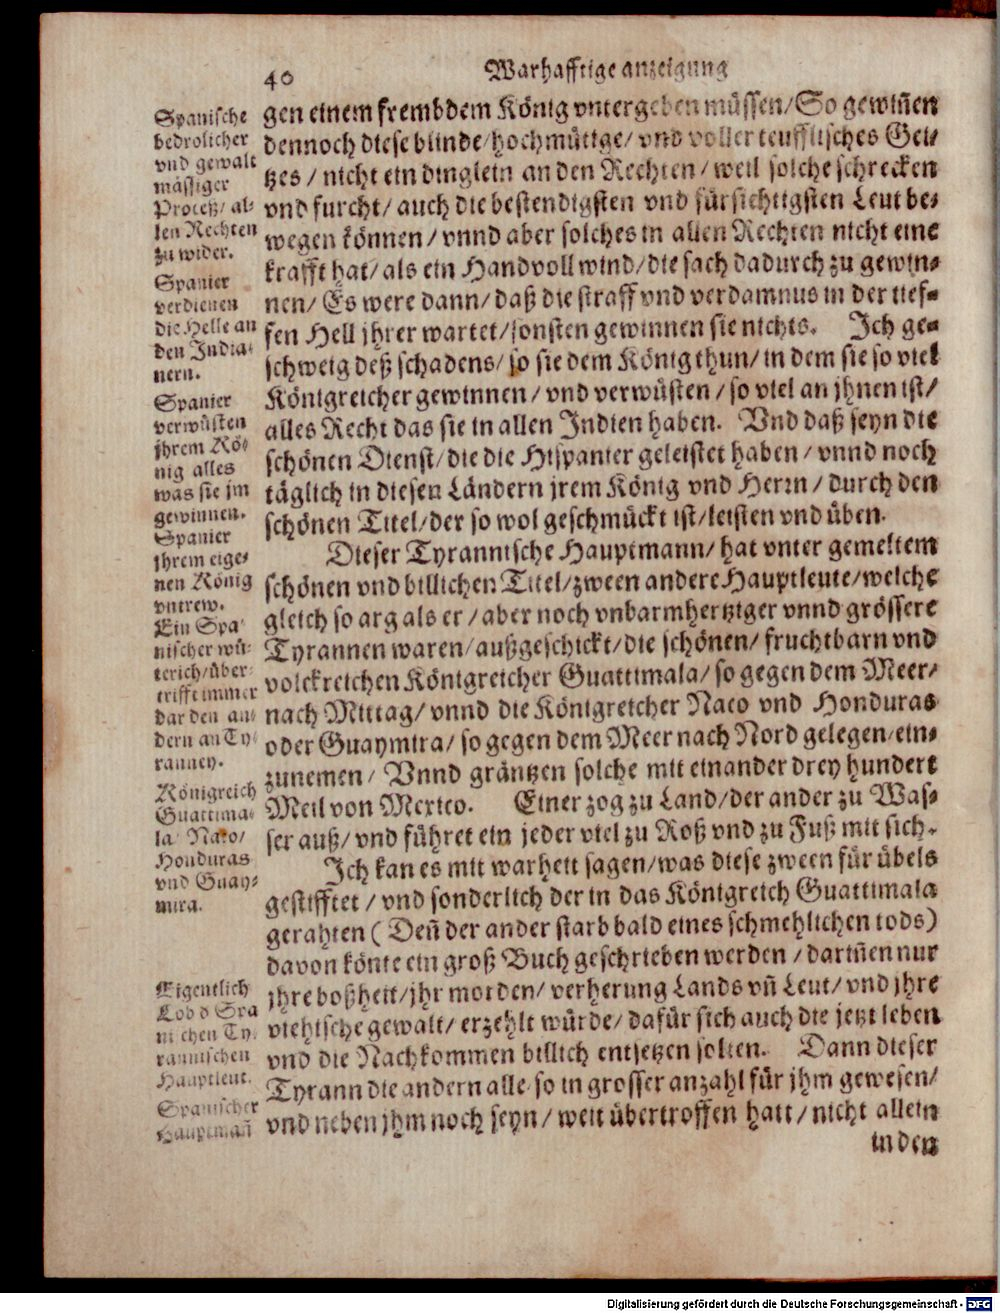 40
Warhafftige anzeigung
gen einem frembdem König vntergeben müssen/ So gewiñen
dennoch diese blinde/hochmütige/ vnd voller teufflisches Gei-
tzes / nicht ein dinglein an den Rechten / weil solche schrecken
vnd furcht/ auch die bestendigsten vnd fürsichtigsten Leut be-
wegen können / vnnd aber solches in allen Rechten nicht eine
krafft hat/ als ein Handvoll wind/ die sach dadurch zu gewin-
nen/ Es were dann/ daß die straff vnd verdamnus in der tief-
fen Hell jhrer wartet/sonsten gewinnen sie nichts. Ich ge-
schweig deß schadens/ so sie dem König thun/ in dem sie so viel
Königreicher gewinnen / vnd verwüsten / so viel an jhnen ist/
alles Recht das sie in allen Indien haben. Vnd daß seyn die
schönen Dienst/ die die Hispanier geleistet haben / vnnd noch
täglich in diesen Ländern jrem König vnd Herrn / durch den
schönen Titel/der so wol geschmückt ist/leisten vnd üben.
Dieser Tyrannische Hauptmann/ hat vnter gemeltem
schönen vnd billichen Titel/zween andere Hauptleute/welche
gleich so arg als er / aber noch vnbarmhertziger vnnd grössere
Tyrannen waren/ außgeschickt/ die schönen/ fruchtbarn vnd
volckreichen Königreicher Guattimala/ so gegen dem Meer/
nach Mittag/ vnnd die Königreicher Naco vnd Honduras
oder Guaymira/ so gegen dem Meer nach Nord gelegen/ein-
zunemen/ Vnnd gräntzen solche mit einander drey hundert
Meil von Mexico. Einer zog zu Land/der ander zu Was-
ser auß/ vnd führet ein jeder viel zu Roß vnd zu Fuß mit sich.
Ich kan es mit warheit sagen/was diese zween für übels
gestifftet / vnd sonderlich der in das Königreich Guattimala
gerahten ( Deñ der ander starb bald eines schmehlichen tods)
davon könte ein groß Buch geschrieben werden / dariñen nur
jhre boßheit/jhr morden/ verherung Lands vñ Leut/ vnd jhre
viehische gewalt/ erzehlt würde/ dafür sich auch die jetzt leben
vnd die Nachkommen billich entsetzen solten. Dann dieser
Tyrann die andern alle/ so in grosser anzahl für jhm gewesen/
vnd neben jhm noch seyn/ weit übertroffen hatt/ nicht allein
in den
Spanische
bedrolicher
vnd gewalt
mässiger
Proceß/ al-
len Rechten
zu wider.
Spanier
verdienen
die Helle an
den India-
nern.
Spanier
verwüsten
jhrem Kö-
nig alles
was sie jm
gewinnen.
Spanier
jhrem eige-
nen König
vntrew.
Ein Spa-
nischer wü-
terich/über-
trifft immer
dar den an-
dern an Ty-
ranney.
Königreich
Guattima-
la/ Naco/
Honduras
vnd Guay-
mira.
Eigentlich
Lob d Spa
nichen Ty-
rannischen
Hauptleut.
Spanischer
Hauptmañ
Digitalisierung gefördert durch die Deutsche Forschungsgemeinschaft - DFG